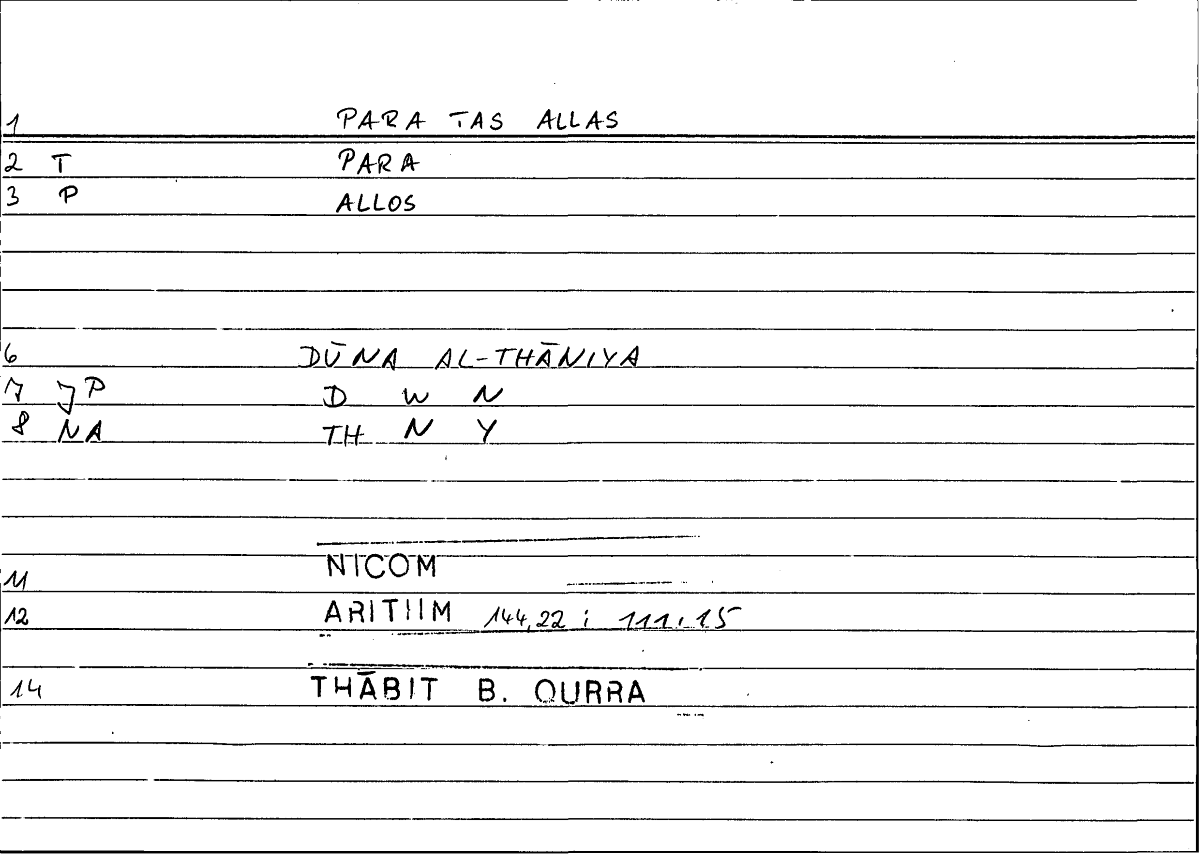 1 PARA TAS ALLAS
2 T PARA
3 P ALLOS
6 DŪNA AL-THĀNIYA
7 JP D W N
8 NA TH N Y
11 NICOM
12 ARITHM 144,22 ; 111,15
14 THĀBIT B. QURRA